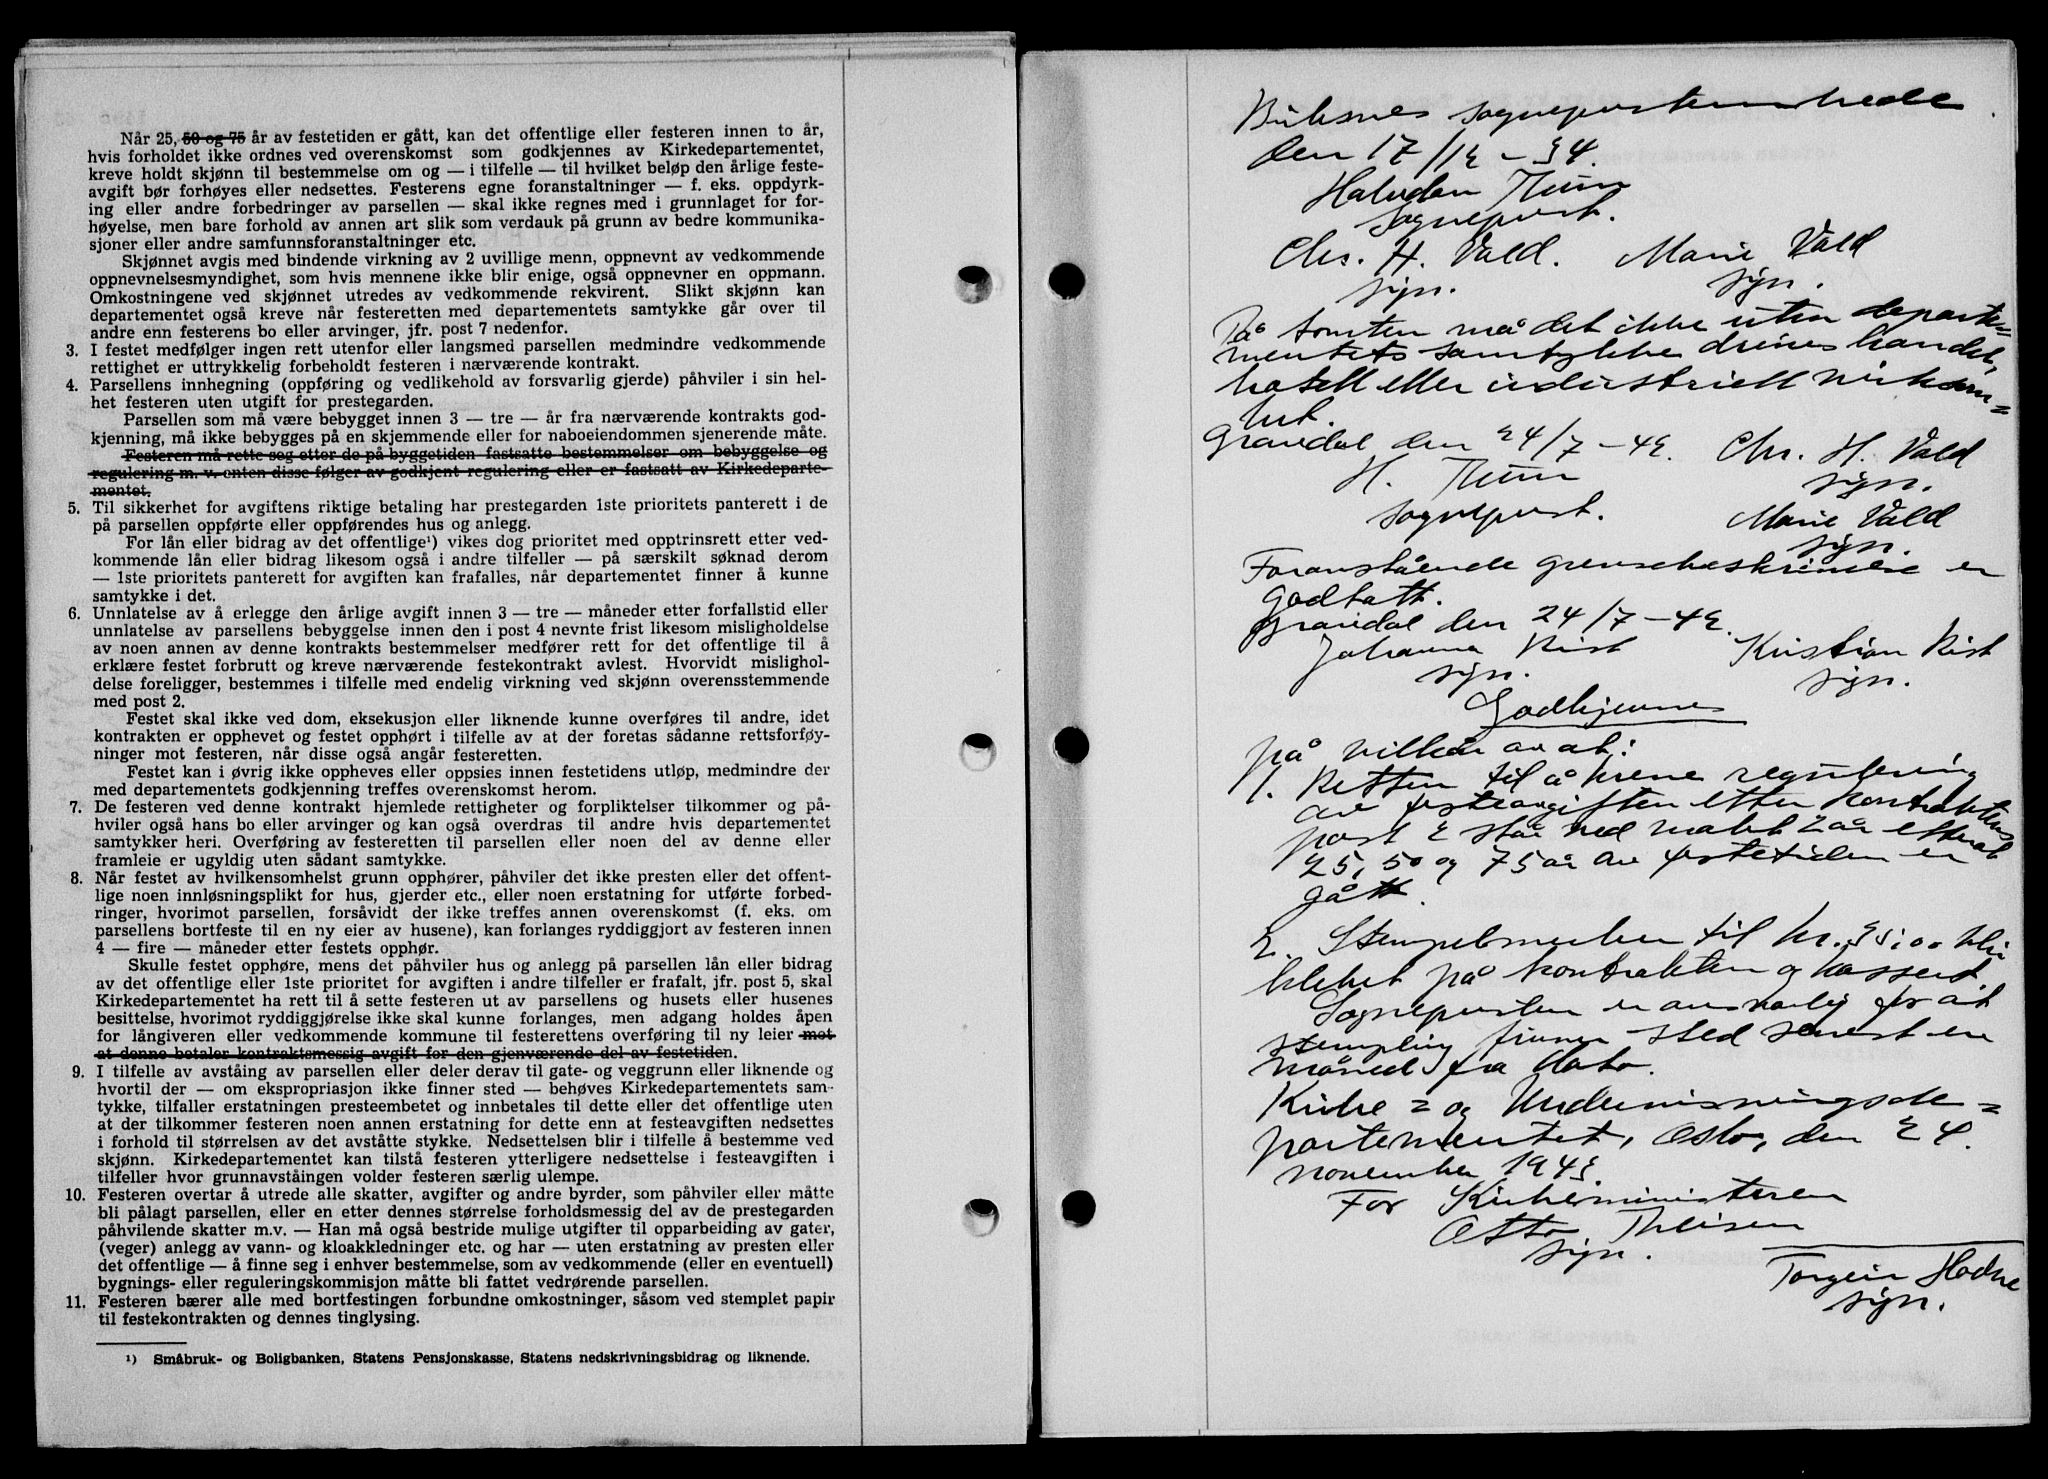 Når 25, 50 og 75 år av festetiden er gått, kan det offentlige eller festeren innen to år,
hvis forholdet ikke ordnes ved overenskomst som godkjennes av Kirkedepartementet,
kreve holdt skjønn til bestemmelse om og — i tilfelle — til hvilket beløp den årlige feste-
avgift bør forhøyes eller nedsettes. Festerens egne foranstaltninger — f. eks. oppdyrk-
ing eller andre forbedringer av parsellen — skal ikke regnes med i grunnlaget for for-
høyelse, men bare forhold av annen art slik som verdauk på grunn av bedre kommunika-
sjoner eller andre samfunnsforanstaltninger etc.
Skjønnet avgis med bindende virkning av 2 uvillige menn, oppnevnt av vedkommende
oppnevnelsesmyndighet, som hvis mennene ikke blir enige, også oppnevner en oppmann.
Omkostningene ved skjønnet utredes av vedkommende rekvirent. Slikt skjønn kan
departementet også kreve når festeretten med departementets samtykke går over til
andre enn festerens bo eller arvinger, jfr. post 7 nedenfor.
3. I festet medfølger ingen rett utenfor eller langsmed parsellen medmindre vedkommende
rettighet er uttrykkelig forbeholdt festeren i nærværende kontrakt.
4. Parsellens innhegning (oppføring og vedlikehold av forsvarlig gjerde) påhviler i sin hel-
het festeren uten utgift for prestegarden.
Parsellen som må være bebygget innen 3 — tre — år fra nærværende kontrakts god-
kjenning, må ikke bebygges på en skjemmende eller for naboeiendommen sjenerende måte.
Festeren må rette seg etter de på byggetiden fastsatte bestemmelser om bebyggelse og
regulering m. v. enten disse følger av godkjent regulering eller er fastsatt av Kirkedeparte-
mentet.
5. Til sikkerhet for avgiftens riktige betaling har prestegarden 1ste prioritets panterett i de
på parsellen oppførte eller oppførendes hus og anlegg.
For lån eller bidrag av det offentlige¹) vikes dog prioritet med opptrinsrett etter ved-
kommende lån eller bidrag likesom også i andre tilfeller — på særskilt søknad derom
— 1ste prioritets panterett for avgiften kan frafalles, når departementet finner å kunne
samtykke i det.
6. Unnlatelse av å erlegge den årlige avgift innen 3 — tre — måneder etter forfallstid eller
unnlatelse av parsellens bebyggelse innen den i post 4 nevnte frist likesom misligholdelse
av noen annen av denne kontrakts bestemmelser medfører rett for det offentlige til å
erklære festet forbrutt og kreve nærværende festekontrakt avlest. Hvorvidt mislighol-
delse foreligger, bestemmes i tilfelle med endelig virkning ved skjønn overensstemmende
med post 2.
Festet skal ikke ved dom, eksekusjon eller liknende kunne overføres til andre, idet
kontrakten er opphevet og festet opphørt i tilfelle av at der foretas sådanne rettsforføy-
ninger mot festeren, når disse også angår festeretten.
Festet kan i øvrig ikke oppheves eller oppsies innen festetidens utløp, medmindre der
med departementets godkjenning treffes overenskomst herom.
7. De festeren ved denne kontrakt hjemlede rettigheter og forpliktelser tilkommer og på-
hviler også hans bo eller arvinger og kan også overdras til andre hvis departementet
samtykker heri. Overføring av festeretten til parsellen eller noen del av denne eller
framleie er ugyldig uten sådant samtykke.
8. Når festet av hvilkensomhelst grunn opphører, påhviler det ikke presten eller det offent-
lige noen innløsningsplikt for hus, gjerder etc., eller noen erstatning for utførte forbed-
ringer, hvorimot parsellen, forsåvidt der ikke treffes annen overenskomst (f. eks. om
parsellens bortfeste til en ny eier av husene), kan forlanges ryddiggjort av festeren innen
4 — fire — måneder etter festets opphør.
Skulle festet opphøre, mens det påhviler hus og anlegg på parsellen lån eller bidrag
av det offentlige eller 1ste prioritet for avgiften i andre tilfeller er frafalt, jfr. post 5, skal
Kirkedepartementet ha rett til å sette festeren ut av parsellens og husets eller husenes
besittelse, hvorimot ryddiggjørelse ikke skal kunne forlanges, men adgang holdes åpen
for långiveren eller vedkommende kommune til festerettens overføring til ny leier mot
at denne betaler kontraktsmessig avgift for den gjenværende del av festetiden.
9. I tilfelle av avståing av parsellen eller deler derav til gate- og veggrunn eller liknende og
hvortil der — om ekspropriasjon ikke finner sted — behøves Kirkedepartementets sam-
tykke, tilfaller erstatningen presteembetet og innbetales til dette eller det offentlige uten
at der tilkommer festeren noen annen erstatning for dette enn at festeavgiften nedsettes
i forhold til størrelsen av det avståtte stykke. Nedsettelsen blir i tilfelle å bestemme ved
skjønn. Kirkedepartementet kan tilstå festeren ytterligere nedsettelse i festeavgiften i
tilfeller hvor grunnavståingen volder festeren særlig ulempe.
10. Festeren overtar å utrede alle skatter, avgifter og andre byrder, som påhviler eller måtte
bli pålagt parsellen, eller en etter dennes størrelse forholdsmessig del av de prestegarden
påhvilende skatter m.v. — Han må også bestride mulige utgifter til opparbeiding av gater,
(veger) anlegg av vann- og kloakkledninger etc. og har — uten erstatning av presten eller
det offentlige — å finne seg i enhver bestemmelse, som av vedkommende (eller en eventuell)
bygnings- eller reguleringskommisjon måtte bli fattet vedrørende parsellen.
11. Festeren bærer alle med bortfestingen forbundne omkostninger, såsom ved stemplet papir
til festekontrakten og dennes tinglysing.
¹) Småbruk- og Boligbanken, Statens Pensjonskasse, Statens nedskrivningsbidrag og liknende.
Buksnes sogneprestembede
den 17/12 - 34.
Halvdan Thun
sogneprest.
Chr. H. Vald. Marie Vald
sign. sign.
På tomten må det ikke uten departe=
mentets samtykke drives handel,
hotell eller industriell virksom=
het.
Gravdal den 24/7 - 42. Chr. H. Vald
H. Thun sign.
sogneprest. Marie Vald
sign.
Foranstående grensebeskrivelse er
godtatt.
Gravdal den 24/7 - 42.
Johanna Rist Kristian Rist
sign. sign.
Godkjennes
på vilkår av at:
1. Retten til å kreve regulering
av festeavgiften etter kontraktens
post 2 står ved makt 2 år etterat
25, 50 og 75 år av festetiden er
gått.
2. Stempelmerker til kr. 35,00 blir
klebet på kontrakten og kassert.
Sognepresten er ansvarlig for at
stempling finner sted senest en
måned fra dato.
Kirke= og Undervisningsde=
partementet, Oslo, den 24.
november 1943.
For Kirkeministeren
Otto Theisen
sign.
Torgeir Hodne
sign.